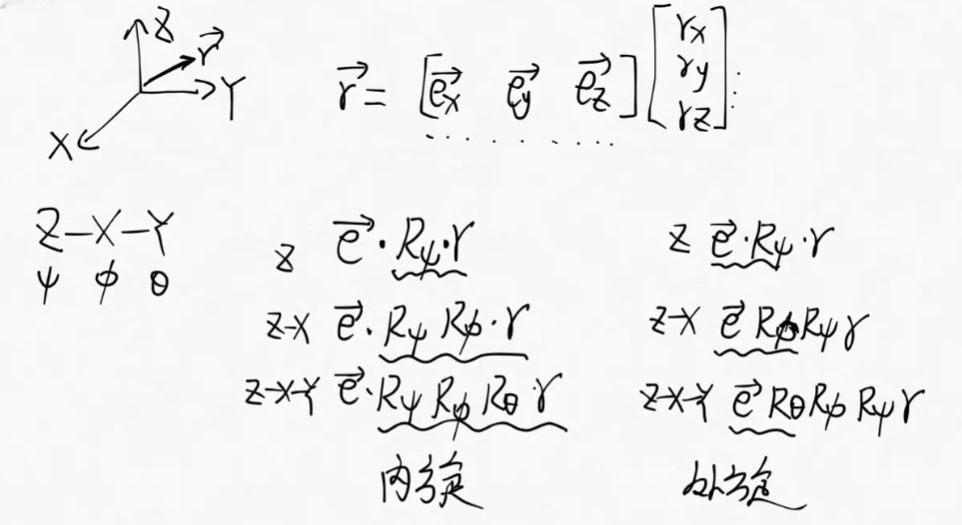 Z
r⃗
Y
X
r⃗ = [e⃗x e⃗y e⃗z] [rx ry rz]
Z-X-Y
ψ φ θ
z e⃗·Rψ·r
z-x e⃗·RψRφ·r
z-x-Y e⃗·RψRφRθ·r
内旋
z e⃗·Rψ·r
z-x e⃗RφRψr
z-x-Y e⃗RθRφRψr
外旋